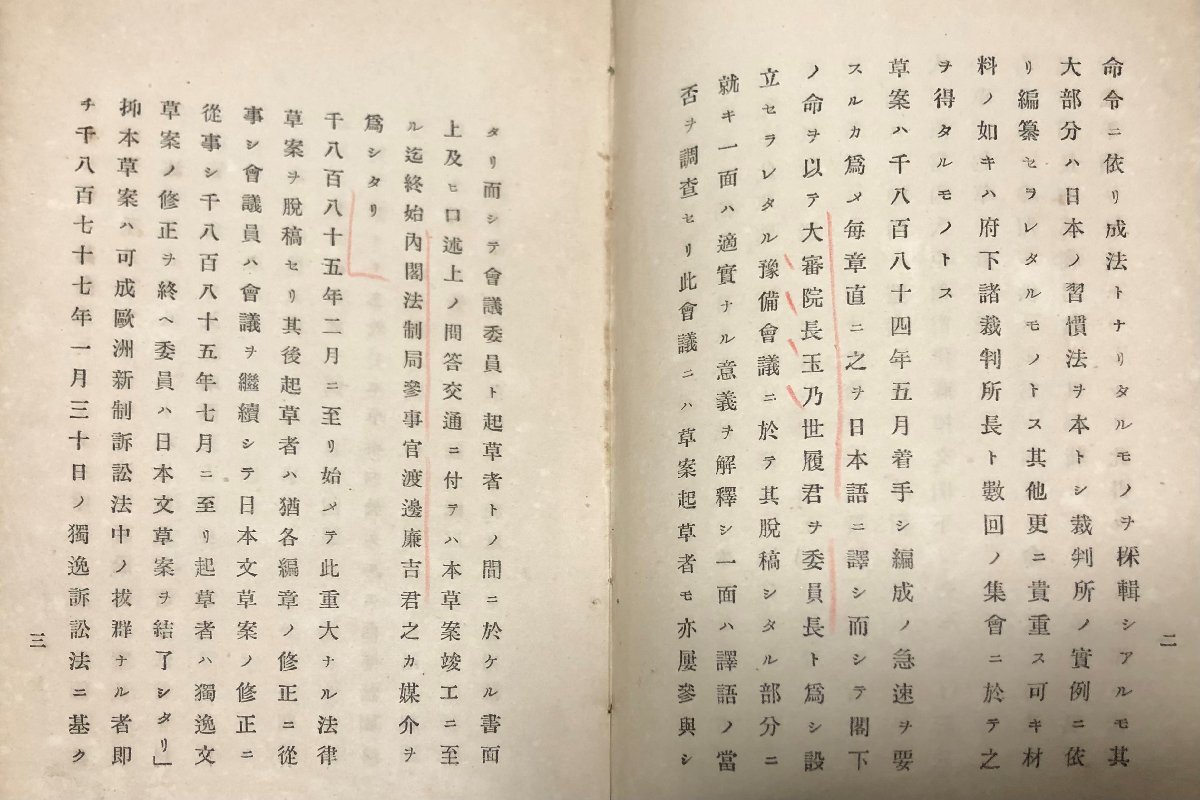 二
命令ニ依リ成法トナリタルモノヲ採輯シアルモ其
大部分ハ日本ノ習慣法ヲ本トシ裁判所ノ實例ニ依
リ編纂セラレタルモノトス其他更ニ貴重ス可キ材
料ノ如キハ府下諸裁判所長ト數回ノ集會ニ於テ之
ヲ得タルモノトス
草案ハ千八百八十四年五月着手シ編成ノ急速ヲ要
スルカ爲メ每章直ニ之ヲ日本語ニ譯シ而シテ閣下
ノ命ヲ以テ大審院長玉乃世履君ヲ委員長ト爲シ設
立セラレタル豫備會議ニ於テ其脱稿シタル部分ニ
就キ一面ハ適實ナル意義ヲ解釋シ一面ハ譯語ノ當
否ヲ調査セリ此會議ニハ草案起草者モ亦屢參與シ
タリ而シテ會議委員ト起草者トノ間ニ於ケル書面
上及ヒ口述上ノ問答交通ニ付テハ本草案竣工ニ至
ル迄終始內閣法制局參事官渡邊廉吉君之カ媒介ヲ
爲シタリ
千八百八十五年二月ニ至リ始メテ此重大ナル法律
草案ヲ脱稿セリ其後起草者ハ猶各編章ノ修正ニ從
事シ會議員ハ會議ヲ繼續シテ日本文草案ノ修正ニ
從事シ千八百八十五年七月ニ至リ起草者ハ獨逸文
草案ノ修正ヲ終ヘ委員ハ日本文草案ヲ結了シタリ」
抑本草案ハ可成歐洲新制訴訟法中ノ拔群ナル者卽
チ千八百七十七年一月三十日ノ獨逸訴訟法ニ基ク
三